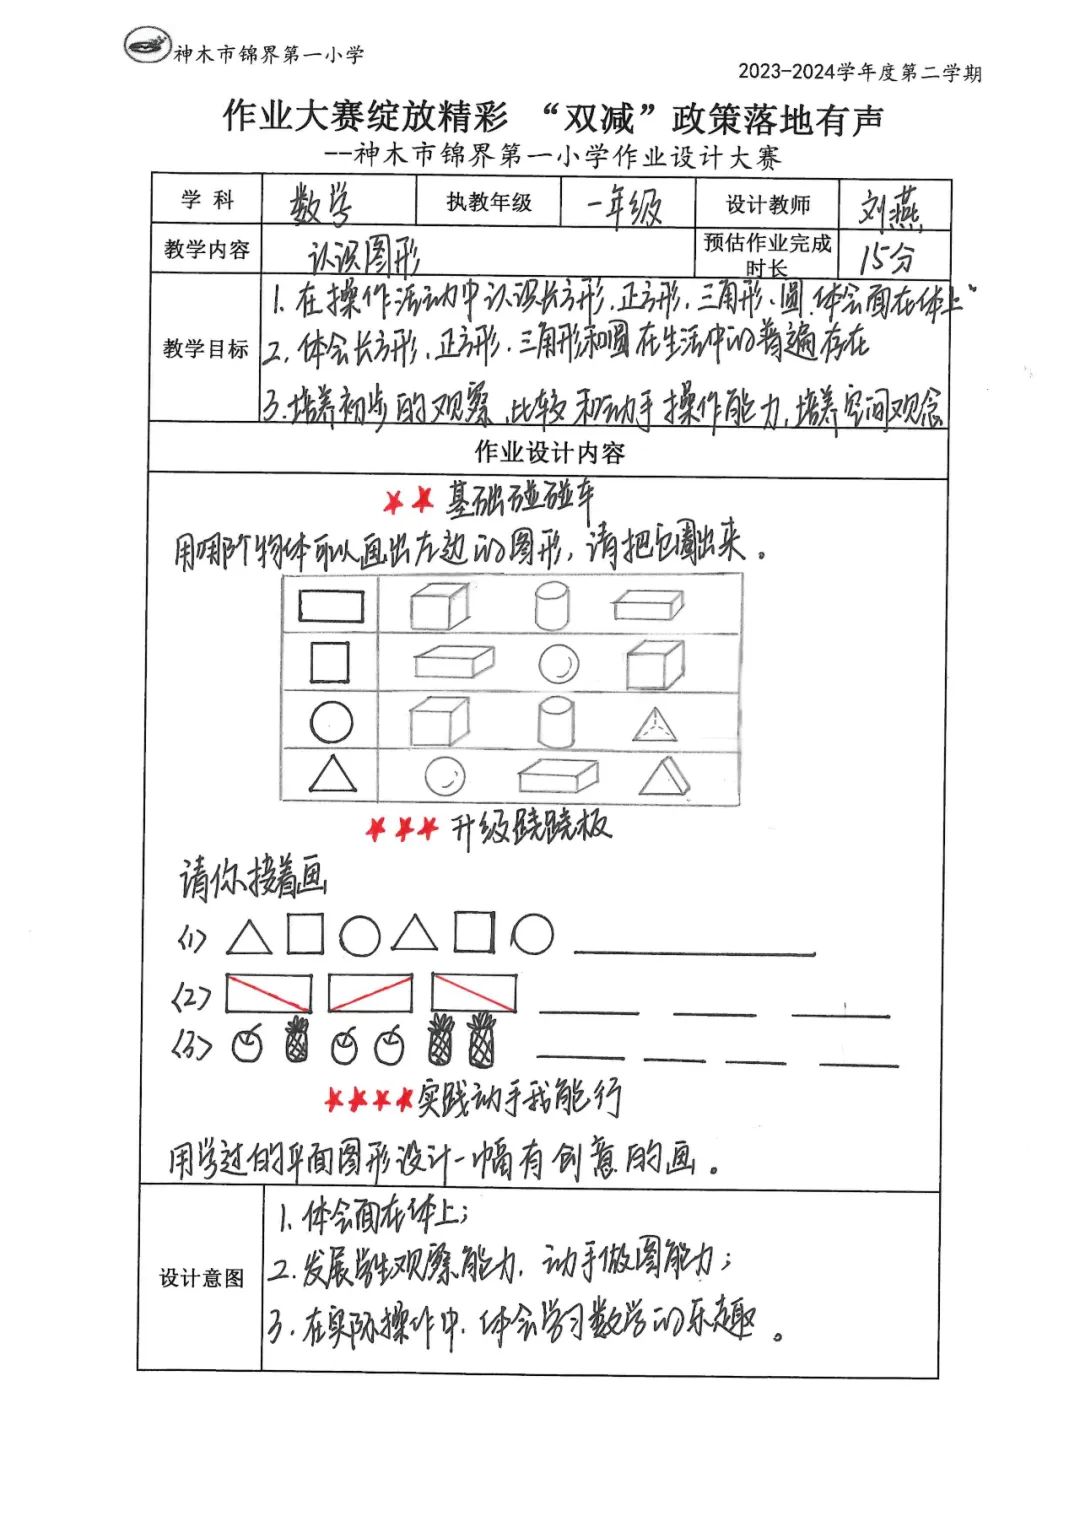 神木市锦界第一小学
2023-2024学年度第二学期
作业大赛绽放精彩 “双减”政策落地有声
--神木市锦界第一小学作业设计大赛
学 科 数学 执教年级 一年级 设计教师 刘燕
教学内容 认识图形 预估作业完成时长 15分
教学目标
1. 在操作活动中认识长方形、正方形、三角形、圆、体会面在体上。
2. 体会长方形、正方形、三角形和圆在生活中的普遍存在
3. 培养初步的观察、比较和动手操作能力,培养空间观念
作业设计内容
★★ 基础碰碰车
用哪个物体可以画出左边的图形,请把它圈出来。
★★★ 升级跷跷板
请你接着画
(1)
(2)
(3)
★★★★实践动手我能行
用学过的平面图形设计一幅有创意的画。
设计意图
1. 体会面在体上;
2. 发展学生观察能力,动手做图能力;
3. 在实际操作中,体会学习数学的乐趣。